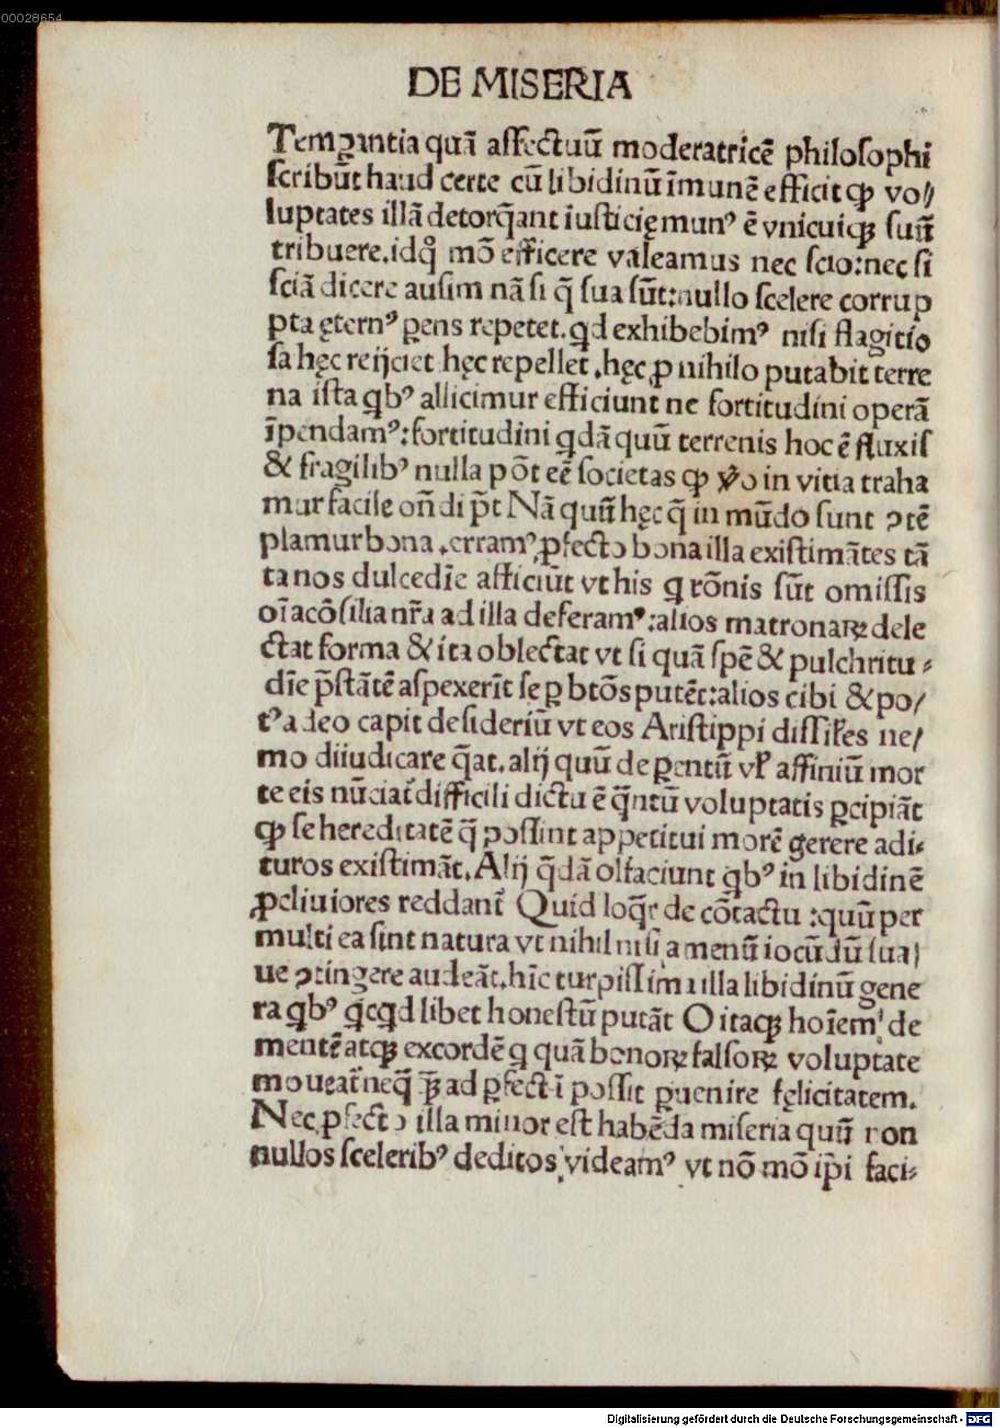 00028654
DE MISERIA
Temꝑantia quā affectuū moderatricē philoſophi
ſcribūt haud certe cū libidinū īmunē efficit ꝙ vo//
luptates illā detorq̄ant iuſticię munꝰ ē vnicuiqꝫ ſuū
tribuere. idq̊ mō efficere valeamus nec ſcio: nec ſi
ſciā dicere auſim nā ſi q̄ ſua ſūt: nullo ſcelere corrup
pta ęternꝰ ꝑens repetet. qd exhibebimꝰ niſi flagitio
ſa hęc reijciet hęc repellet. hęc ꝓ nihilo putabit terre
na iſta qbꝰ allicimur efficiunt ne fortitudini operā
īpendamꝰ: fortitudini qdā quū terrenis hoc ē fluxiſ
& fragilibꝰ nulla pōt eē ſocietas ꝙ v̊o in vitia traha
mur facile oñdi p̄t Nā quū hęc q̄ in mūdo ſunt ↄtē
plamur bona. erramꝰ ꝓfecto bona illa exiſtimātes tā
ta nos dulcedīe afficiūt vt his q rōnis ſūt omiſſis
oīa cōſilia nr̄a ad illa deferamꝰ: alios matronaꝝ dele
ctat forma & ita oblectat vt ſi quā ſpē & pulchritu-
dīe p̄ſtātē aſpexerīt ſe ꝑ btōs putēt: alios cibi & po/
tꝰ adeo capit deſideriū vt eos Ariſtippi diſſiles ne/
mo diiudicare q̄at. alij quū de ꝑentū vl̓ affiniū mor
te eis nūciat̄ difficili dictu ē q̄ntū voluptatis ꝑcipiāt
ꝙ ſe hereditatē q̄ poſſint appetitui morē gerere adi-
turos exiſtimāt. Alij q̄dā olfaciunt qbꝰ in libidinē
ꝓcliuiores reddant̄ Quid loq̄r de cōtactu: quū per
multi ea ſint natura vt nihil niſi amenū iocūdū ſua/
ue ↄtingere audeāt. hīc turpiſſima illa libidinū gene
ra qbꝰ qcqd libet honeſtū putāt O itaqꝫ hoīem de
mentē atqꝫ excordē q quā bonoꝝ falſoꝝ voluptate
moueat̄ neq̄ꝗ̄ ad ꝑfectī poſſit ꝑuenire fęlicitatem.
Nec ꝓfecto illa minor eſt habēda miſeria quū non
nullos ſceleribꝰ deditos videamꝰ vt nō mō ip̄i faci-
Digitalisierung gefördert durch die Deutsche Forschungsgemeinschaft - DFG